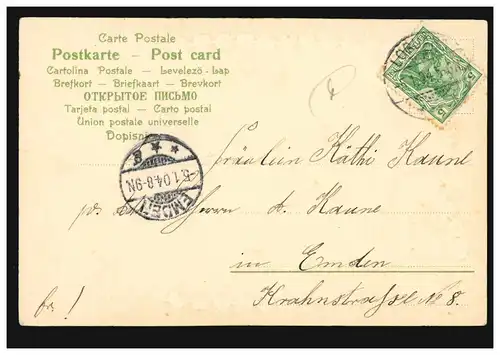 Carte Postale
Postkarte — Post card
Cartolina Postale — Levelező-Lap
Brefkort — Briefkaart — Brevkort
ОТКРЫТОЕ ПИСЬМО
Tarjeta postal — Carto postal
Union postale universelle
Dopisni
5.1.04.8-9N.
EMDEN
5
5
Fräulein Käthi Kaune
Herrn A. Kaune
in Emden
Krahnstrasse № 8.
fr. !